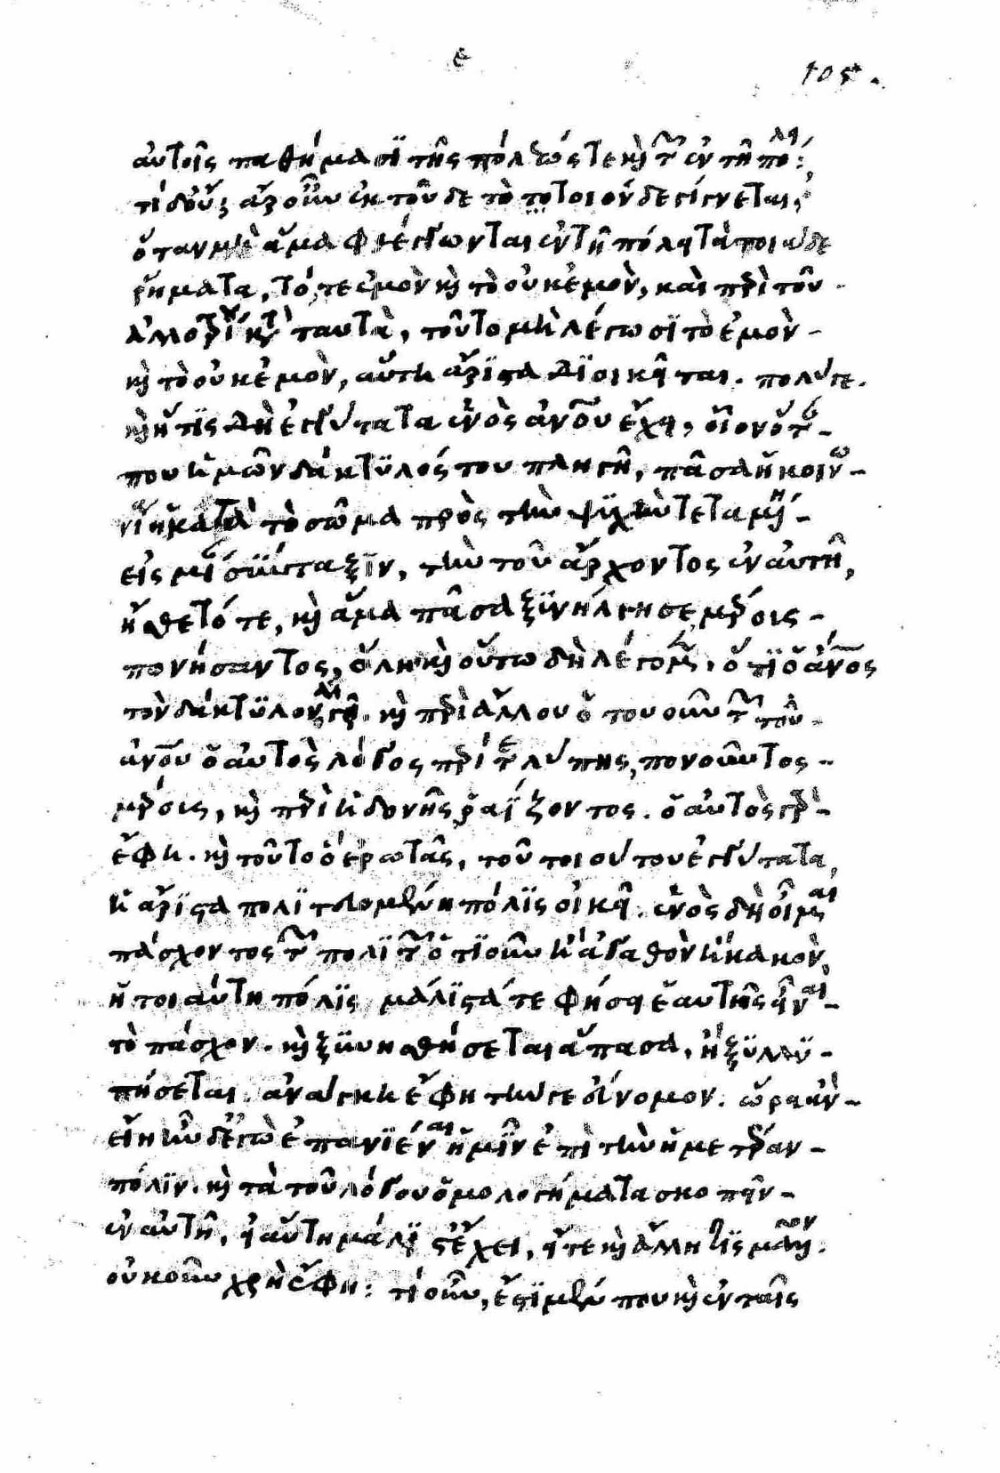 ε
105
αὐτοῖς παθήμασι τῆς πόλεώς τε καὶ τῶν ἐν τῇ πόλει:
τί δ' οὔ; ἆρ' οὖν ἐκ τοῦδε τὸ τοιόνδε γίγνεται,
ὅταν μὴ ἅμα φθέγγωνται ἐν τῇ πόλει τὰ τοιάδε
ῥήματα, τό, τε ἐμὸν καὶ τὸ οὐκ ἐμὸν, καὶ περὶ τοῦ
ἀλλοτρίου κατὰ ταυτὰ, τοῦτο μὴ λέγωσι τὸ ἐμὸν
καὶ τὸ οὐκ ἐμὸν, αὕτη ἄριστα διοικῆται. πολύ γε.
καὶ ἥτις δὴ ἐγγύτατα ἑνὸς ἀνθρώπου ἔχει, οἷον ὅταν
που ἡμῶν δάκτυλός του πληγῇ, πᾶσα ἡ κοινω
νία ἡ κατὰ τὸ σῶμα πρὸς τὴν ψυχὴν τεταμένη
εἰς μίαν σύνταξιν, τὴν τοῦ ἄρχοντος ἐν αὐτῇ,
ᾔσθετό τε, καὶ ἅμα πᾶσα ξυνήλγησε μέρους
πονήσαντος, ὅλη καὶ οὕτω δὴ λέγομεν, ὅτι ὁ ἄνθρωπος
τὸν δάκτυλον ἀλγεῖ. καὶ περὶ ἄλλου ὅτου οὖν τῶν τοῦ
ἀνθρώπου ὁ αὐτὸς λόγος περί τε λύπης, πονοῦντος
μέρους, καὶ περὶ ἡδονῆς ῥαΐζοντος. ὁ αὐτὸς γὰρ
ἔφη. καὶ τοῦτο ὃ ἐρωτᾷς, τοῦ τοιούτου ἐγγύτατα,
ἡ ἄριστα πολιτευομένη πόλις οἰκεῖ. ἑνὸς δὴ οἶμαι
πάσχοντος τῶν πολιτῶν ὁτιοῦν ἢ ἀγαθὸν ἢ κακὸν,
ἡ τοιαύτη πόλις μάλιστά τε φήσει ἑαυτῆς εἶναι
τὸ πάσχον. καὶ ξυνησθήσεται ἅπασα, ἢ ξυλλυ
πήσεται. ἀνάγκη ἔφη τήν γε εὔνομον. ὥρα ἂν
εἴη ἦν δ' ἐγὼ ἐπανιέναι ἡμῖν ἐπὶ τὴν ἡμετέραν
πόλιν. καὶ τὰ τοῦ λόγου ὁμολογήματα σκοπεῖν
ἐν αὐτῇ, εἰ αὕτη μάλιστ' ἔχει, εἴτε καὶ ἄλλη τις μᾶλλον.
οὐκοῦν χρὴ ἔφη: τί οὖν, ἔστι μέν που καὶ ἐν ταῖς